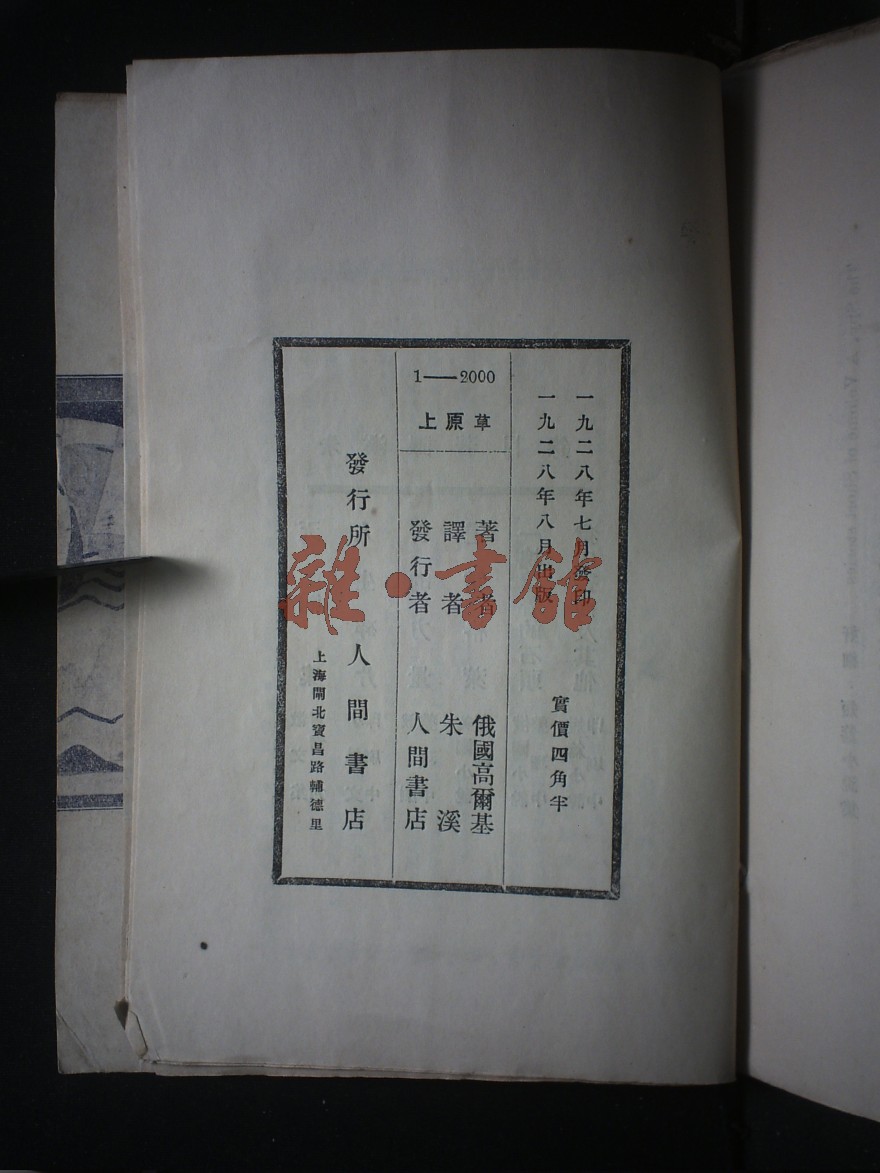 一九二八年七月發印
一九二八年八月出版
實價四角半
1——2000
草原上
著者 俄國高爾基
譯者 朱溪
發行者 人間書店
發行所 人間書店
上海閘北寶昌路輔德里
雜·書館